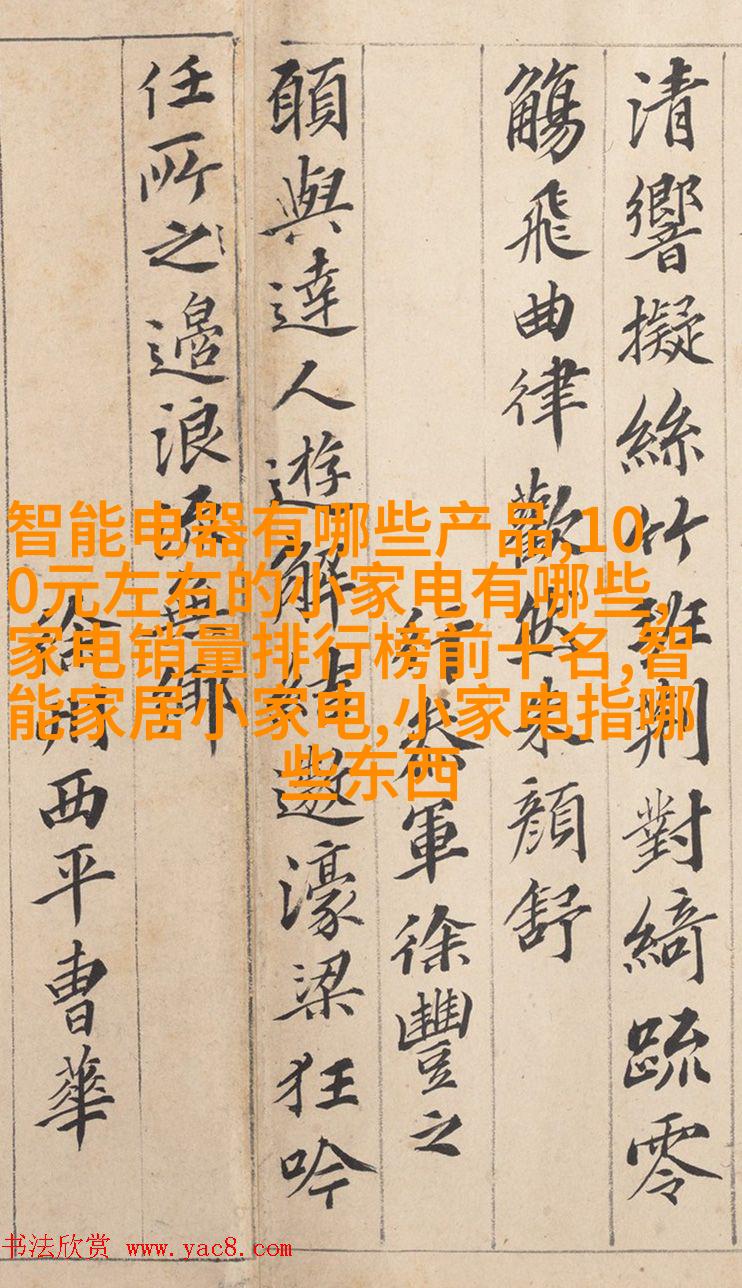 清響擬絲竹班荆對綺疏零
觴飛曲律歡然朱顏舒
行參軍徐豐之
願與達人遊解結遨濠梁狂吟
任所之邉浪無鄉
徐州西平曹華
智能电器有哪些产品,10
0元左右的小家电有哪些,
家电销量排行榜前十名,智
能家居小家电,小家电指哪
些东西
书法欣赏 www.yac8.com